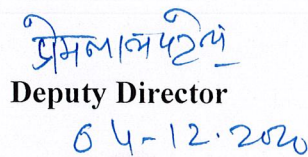 प्रेमलाल पटेल
Deputy Director
04-12.2020